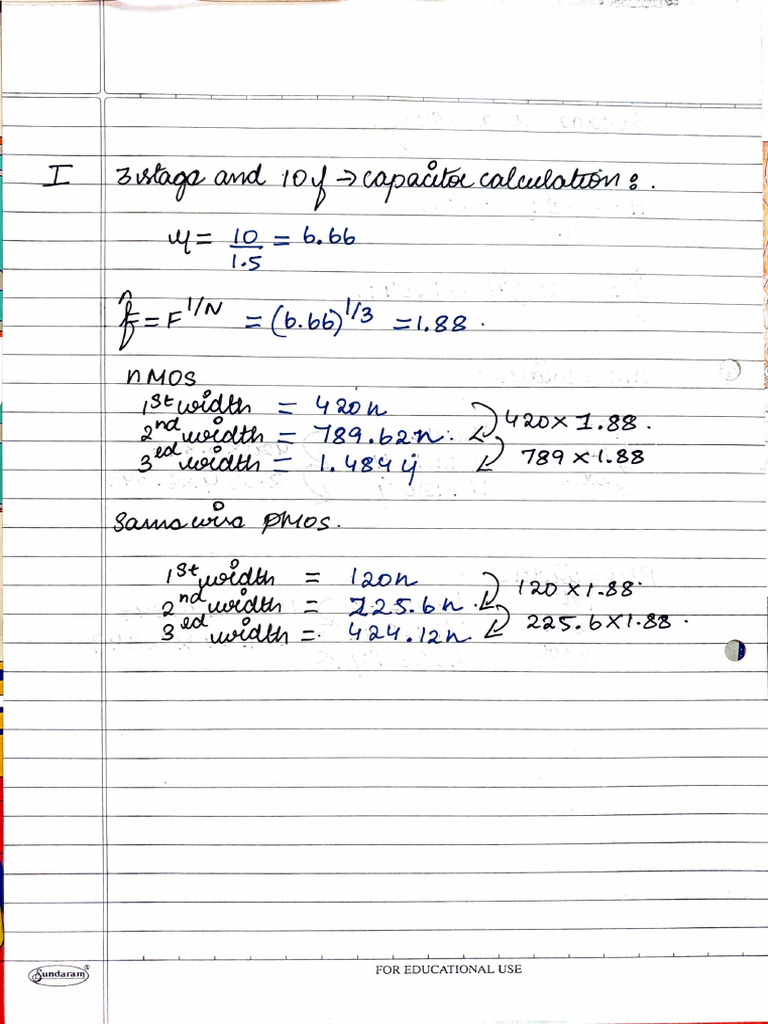 I 3 stage and 10 f → capacitor calculation :.
= 10 / 1.5 = 6.66
f̂ = F^1/N = (6.66)^1/3 = 1.88 .
nMOS
1st width = 420n
420 × 1.88 .
2nd width = 789.62n .
789 × 1.88
3ed width = 1.484
Same wise PMOS.
1st width = 120n
120 × 1.88 .
2nd width = 225.6n .
225.6 × 1.88 .
3ed width = . 424.12n
Sundaram®
FOR EDUCATIONAL USE